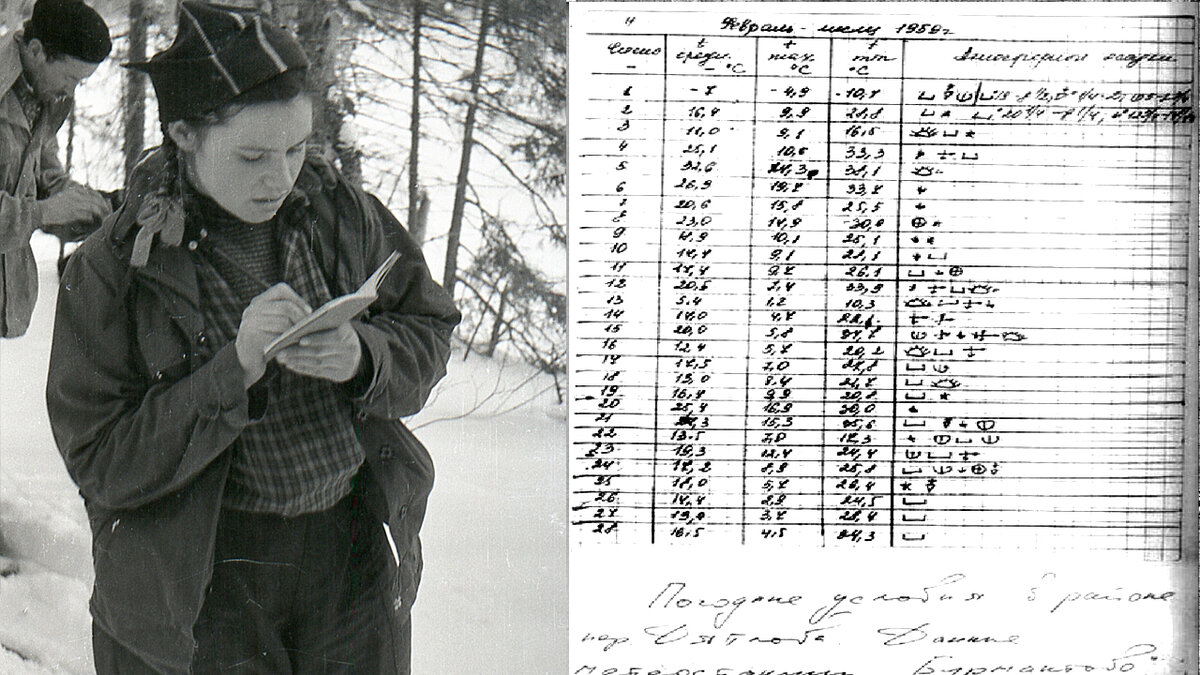 Февраль - месяц 1959 г
Число t средн. t max. t min Атмосферные осадки
- °C °C °C
1 -7 -4,9 -10,7
2 16,4 9,9 21,8
3 11,0 9,1 16,5
4 25,1 10,6 33,3
5 32,6 24,3 38,1
6 26,9 19,7 33,7
7 20,6 15,8 25,5
8 23,0 14,9 -30,8
9 10,1 25,1
10 14,4 9,1 21,1
11 17,4 9,7 26,1
12 20,5 7,4 33,9
13 5,4 1,2 10,3
14 14,0 4,7
15 20,0 5,8
16 12,4 5,7 20,2
17 17,5 7,0
18 13,0 8,4 21,7
19 16,4 9,9 20,8
20 25,4 16,9 30,0
21 15,3
22 13.5 7,0 17,3
23 19,3 12,4 24,4
24 17,2 8,9 25,8
25 18,0 5,7 29,4
26 14,4 2,9 24,5
27 3,7 28,4
28 16,5 4,5 24,3
Погодные условия в районе
пер. Дятлова. Данные
метеостанции Бурмантово